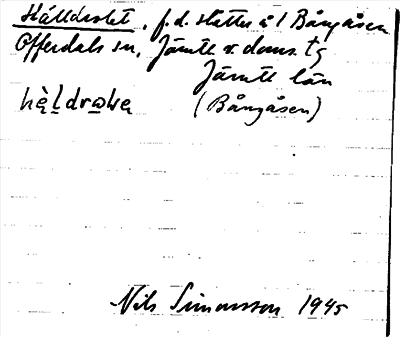 f.d. slåtter å 1 Bångåsen
Offerdals sn, Jämtl. v. doms. tg
Jämtl. län
(Bångåsen)
Nils Simonsson 1945